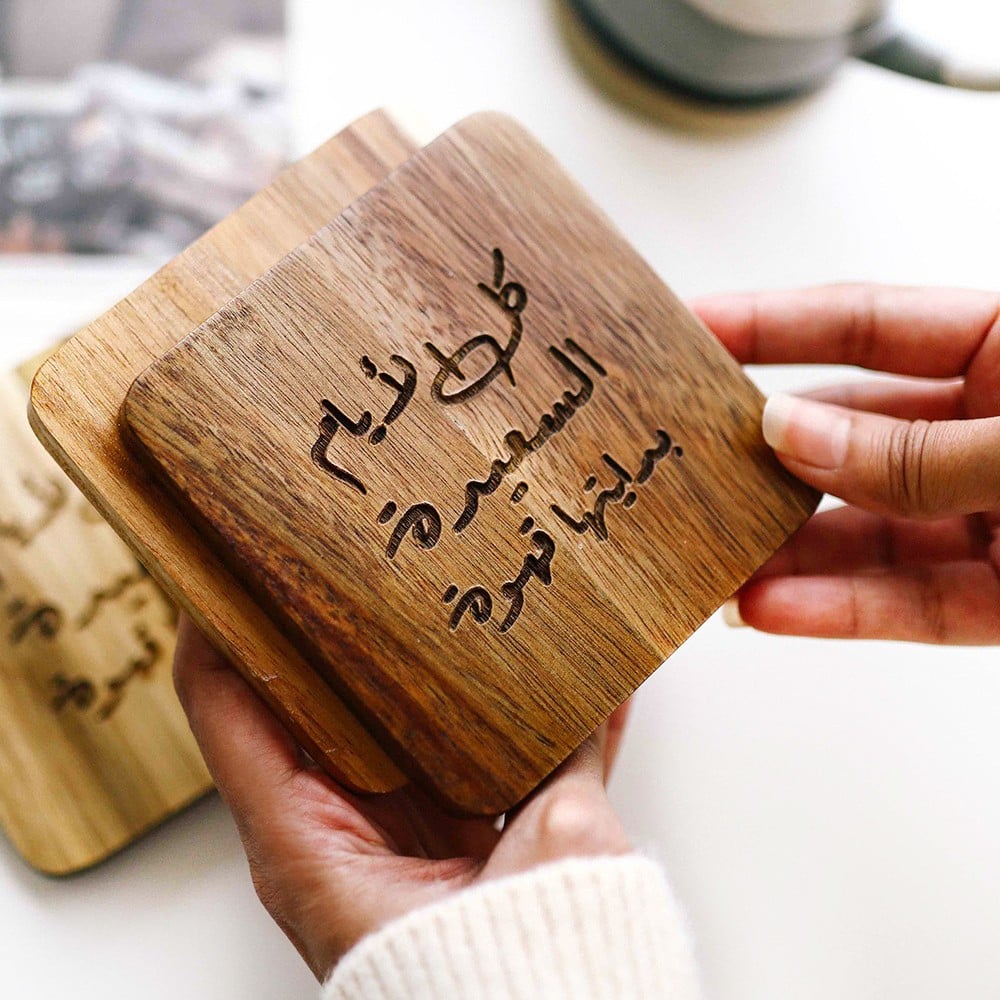 كل الأيام
السعيدة
بدايتها قهوة